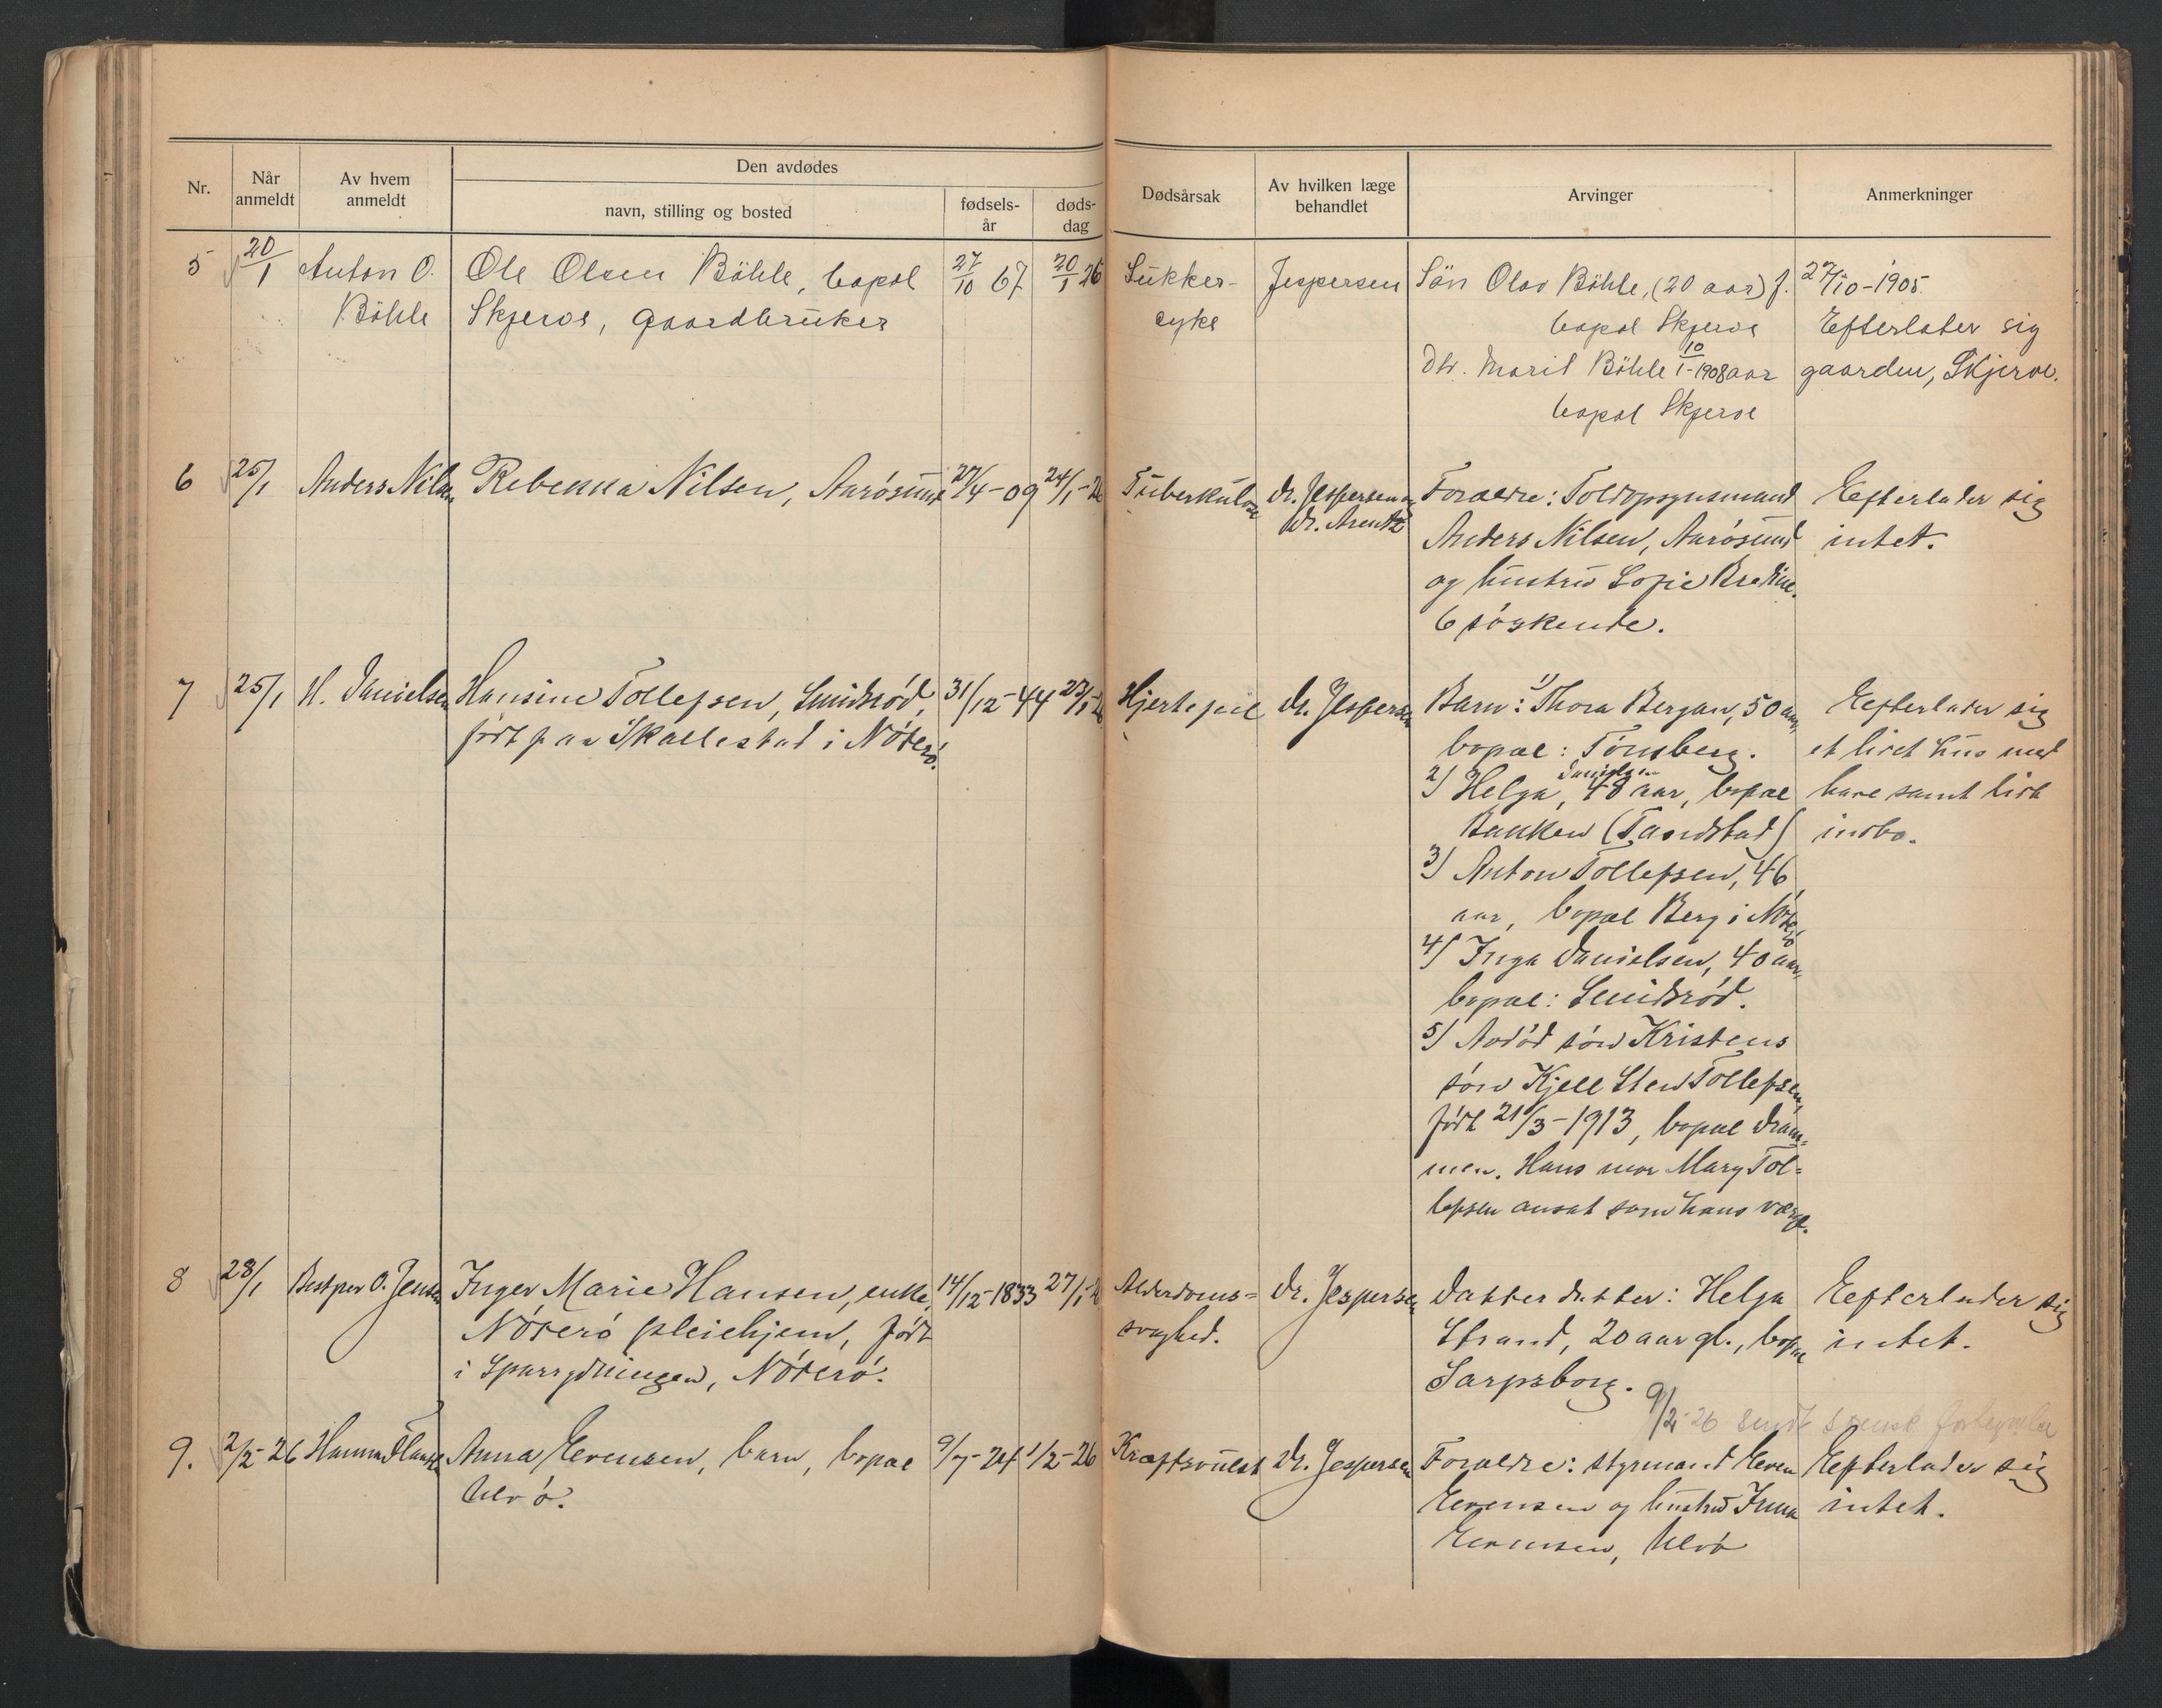 Nr.
Når anmeldt
Av hvem anmeldt
Den avdødes
navn, stilling og bosted
fødsels-år
døds-dag
Dødsårsak
Av hvilken læge behandlet
Arvinger
Anmerkninger
5
20/1
Anton O.
Böhle
Ole Olsen Böhle, bopæl
Skjerve, gaardbruker
27/10 67
20/1 26
Sukker-
syke
Jespersen
Sön Olav Böhle, (20 aar) f.
bopæl Skjerve
Dtr. Marit Böhle 10/1-1908 aar
bopæl Skjerve
27/10-1905.
Efterlater sig
gaarden, Skjerve.
6
25/1
Anders Nilsen
Rebekka Nilsen, Aarösund
27/4-09
24/1-26
Tuberkulose
dr. Jespersen og
dr. Arentz
Forældre: Toldopsynsmand
Anders Nilsen, Aarösund
og hustru Sofie Bredine.
6 söskende.
Efterlader sig
intet.
7
25/1
H. Danielsen
Hansine Tollefsen, Smidsröd,
födt paa Skallestad i Nöterö.
31/12-44
23/1-26
Hjertefeil
dr. Jespersen
Barn: 1) Thora Bergan, 50 aar,
bopæl: Tönsberg.
2) Helga Danielsen, 48 aar, bopæl
Bakken (Tandstad)
3) Anton Tollefsen, 46
aar, bopæl Berg i Nöterö
4) Inga Danielsen, 40 aar,
bopæl: Smidsröd.
5) Avdöd sön Kristens
sön Kjell Sten Tollefsen,
födt 21/3-1913, bopæl Dram=
men. Hans mor Mary Tol=
lefsen ansat som hans værge.
Efterlader sig
et litet hus med
have samt litt
indbo.
8
28/1
Bestyrer O. Jensen
Inger Marie Hansen, enke,
Nöterö pleiehjem, födt
i Sparrydningen, Nöterö.
14/12-1833
27/1-26
Alderdoms=
svaghed.
Dr. Jespersen
Datter datter: Helga
Strand, 20 aar gl., bopæl
Sarpsborg.
Efterlader sig
intet.
9/2-26 sendt
9.
2/2-26
Anna Evensen, barn, bopæl
Ulvö.
9/7-24
1/2-26
Kræftsvulst
Dr. Jespersen
Forældre: styrmand Even
Evensen og hustru
Evensen, Ulvö
Efterlader sig
intet.